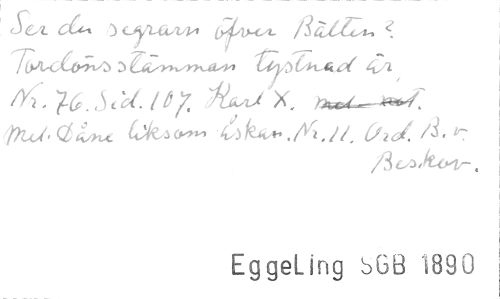 Ser du segrarn öfver Bälten?
Tordönsstämman tystnad är,
Nr. 76. Sid. 107. Karl X.
Mel. Dåne liksom åskan. Nr. 11. Ord. B. v.
Beskow.
EggeLing SGB 1890